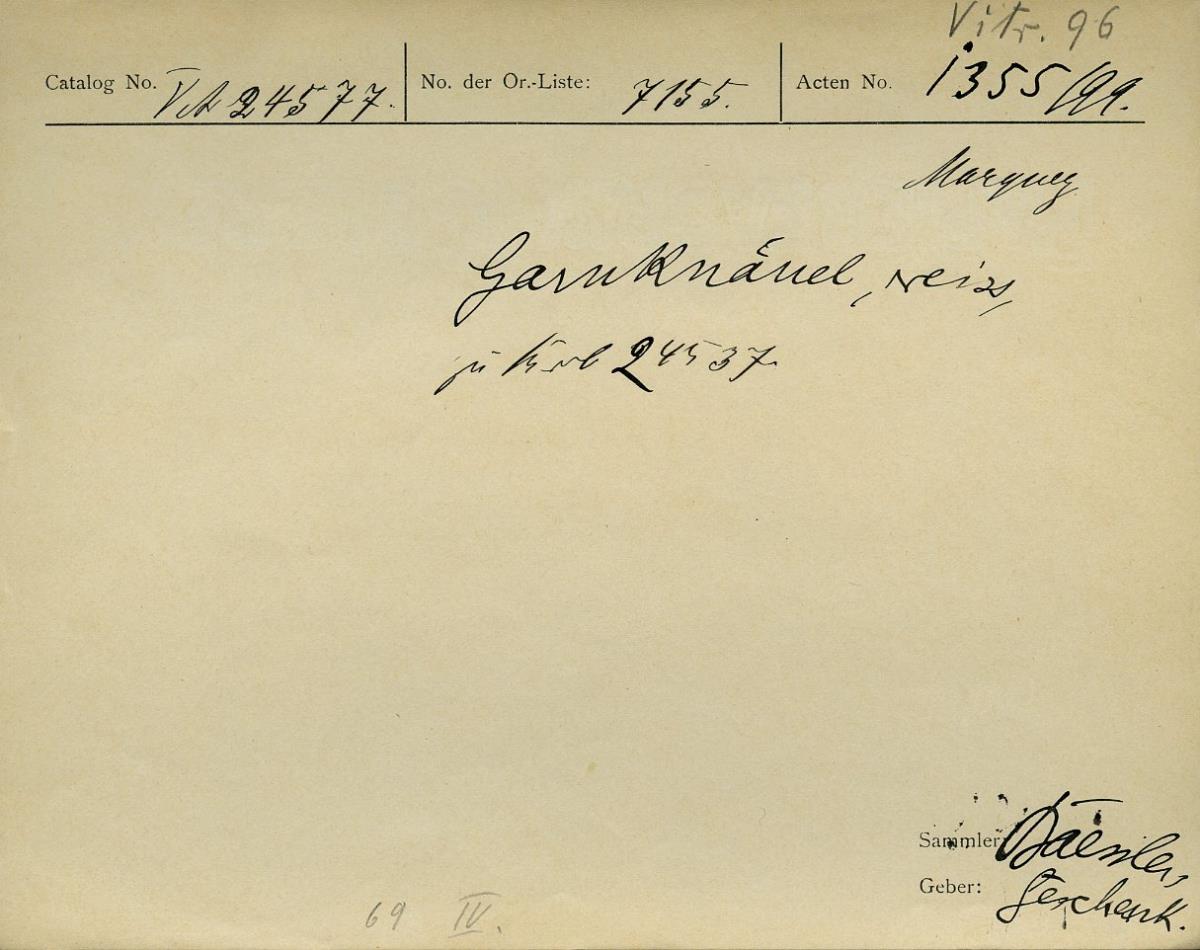 Vitr. 96
Catalog No. VA 24577. No. der Or.-Liste: 7155. Acten No. 1355/99.
Marquez
Garnknäuel, weiss,
zu Korb 24537.
Sammler: Baessler,
Geber: Geschenk.
69 IV.